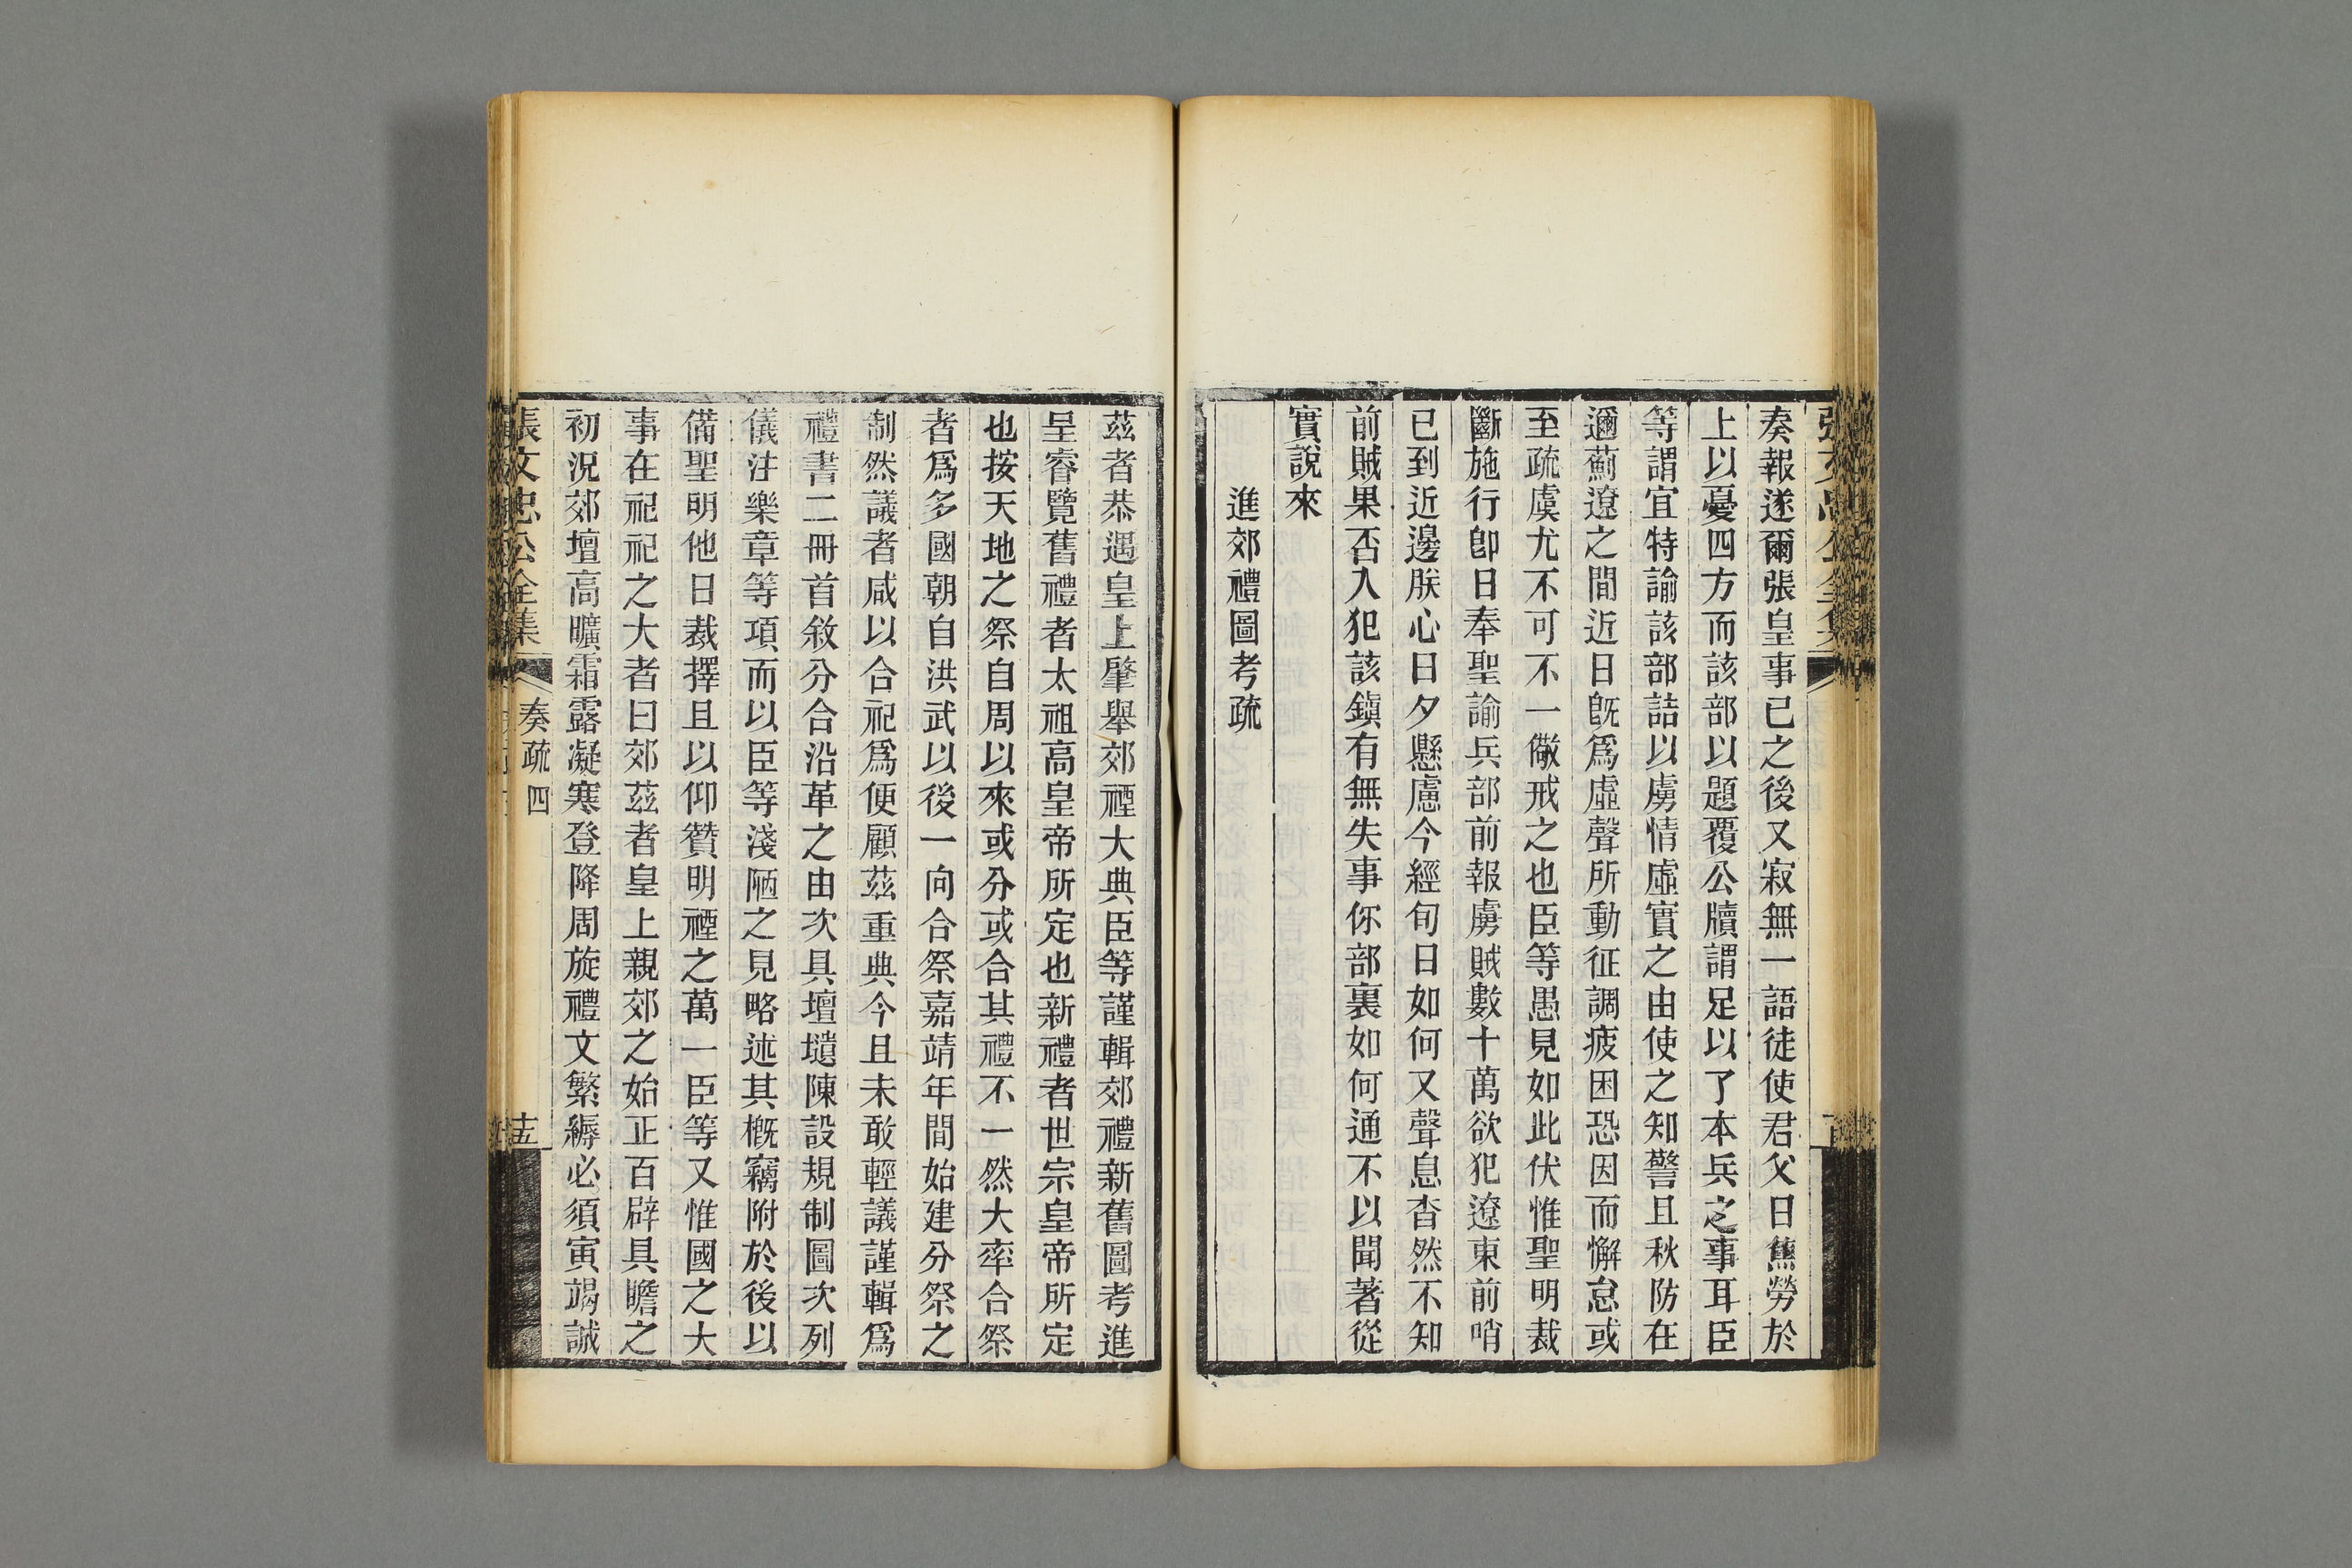 奏報遂爾張皇事已之後又寂無一語徒使君父日焦勞於
上以憂四方而該部以題覆公牘謂足以了本兵之事耳臣
等謂宜特諭該部詰以虜情虛實之由使之知警且秋防在
邇薊遼之間近日旣爲虛聲所動征調疲困恐因而懈怠或
至疏虞尤不可不一儆戒之也臣等愚見如此伏惟聖明裁
斷施行卽日奉聖諭兵部前報虜賊數十萬欲犯遼東前哨
已到近邊朕心日夕懸慮今經旬日如何又聲息杳然不知
前賊果否入犯該鎭有無失事你部裏如何通不以聞著從
實說來
進郊禮圖考疏
茲者恭遇皇上肇舉郊禋大典臣等謹輯郊禮新舊圖考進
呈睿覽舊禮者太祖高皇帝所定也新禮者世宗皇帝所定
也按天地之祭自周以來或分或合其禮不一然大率合祭
者爲多國朝自洪武以後一向合祭嘉靖年間始建分祭之
制然議者咸以合祀爲便顧茲重典今且未敢輕議謹輯爲
禮書二冊首敘分合沿革之由次具壇壝陳設規制圖次列
儀注樂章等項而以臣等淺陋之見略述其槪竊附於後以
備聖明他日裁擇且以仰贊明禋之萬一臣等又惟國之大
事在祀祀之大者曰郊茲者皇上親郊之始正百辟具瞻之
初況郊壇高曠霜露凝寒登降周旋禮文繁縟必須寅竭誠
張文忠公全集 奏疏四 十五